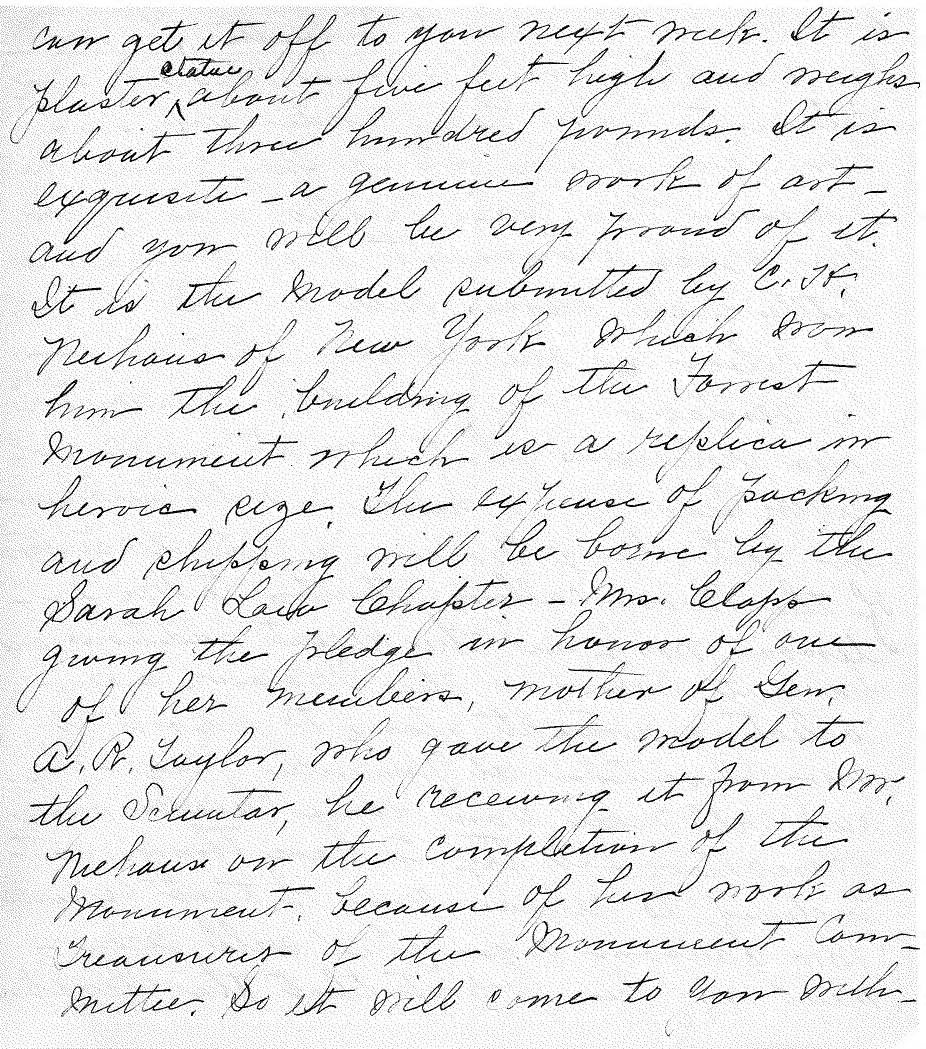 can get it off to you next week. It is
plaster statue about five feet high and weighs
about three hundred pounds. It is
exquisite – a genuine work of art –
and you will be very proud of it.
It is the model submitted by C. H.
Neihaus of New York which won
him the building of the Forrest
Monument which is a replica in
heroic size. The expense of packing
and shipping will be borne by the
Sarah Law Chapter – Mrs. Clapp
giving the pledge in honor of one
of her members, mother of Gen.
A. R. Taylor, who gave the model to
the, he receiving it from Mr.
Niehaus on the completion of the
Monument, because of her work as
Treasurer of the Monument Com-
mittee. So it will come to you with-